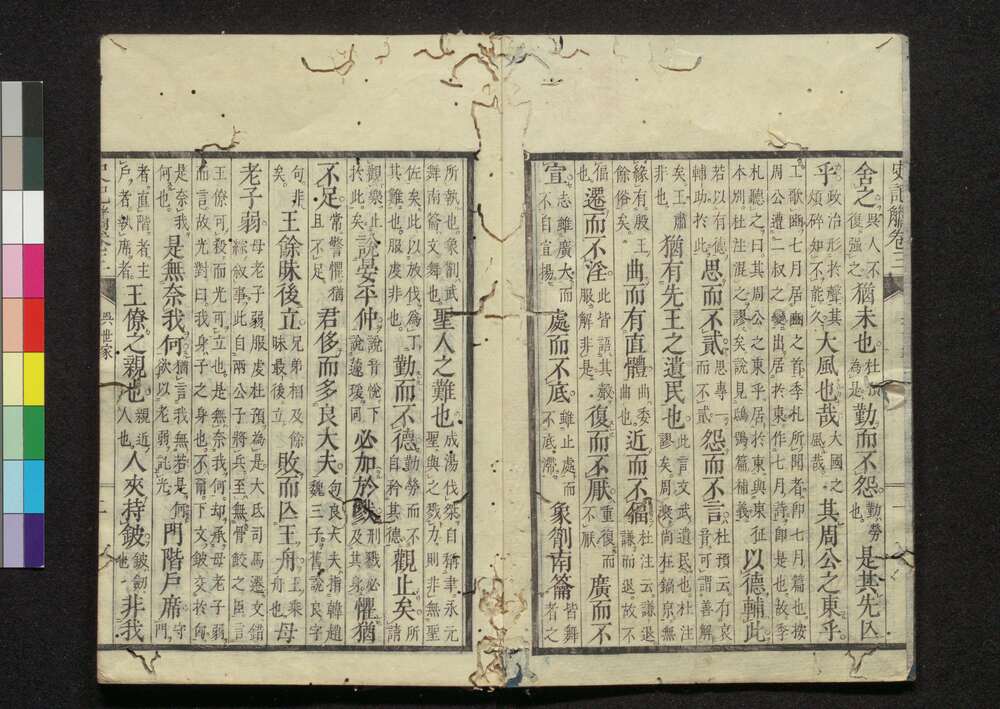 史記觿卷三
舍之。與人不復強之。猶未也。杜預為是。勤而不怨。勤勞也。是其先亾
乎。政治形於聲其煩碎知不能久。大風也哉。大國之風哉。其周公之東乎。
工歌豳七月居豳之首季札所聞者卽七月篇也按周公遭二叔之變出居於東作七月詩卽是也故季
札聽之曰其周公之東乎居於東與東征本別杜注混之謬矣說見鴟鴞篇補義 以德輔此
若以有德輔助於此 思而不貳。思專一而不貳。怨而不言。杜預云有哀音可謂善解
矣王肅非也 猶有先王之遺民也。此言文武遺民也杜注謬矣周澳尚在鎬京無
緣有殷王餘俗矣 曲而有直體。曲委曲也。近而不偪。杜注云謙退謙而退故不
偪也 遷而不淫。此皆語其嚴服解非是。復而不厭。重復而不厭 廣而不
宣。志雖廣大而不自宣揚。處而不底。雖止處而不底滯。象劀南籥 皆舞者之
所執也象劀武舞南籥文舞。聖人之難也。成湯伐桀自稱聿求元聖與之戮力則非無聖
佐矣此以放伐為丁其難也服虔非也。勤而不德。勤勞而不自矜其德 觀止矣。所請
觀樂止於此矣。說晏平仲。說音悅下說蘧瑗同 必加於戮。刑戮必及其身 懼猶
不足。常警懼猶且不足 君侈而多良大夫。句良大夫指韓趙魏三子舊說良字
句非矣。王餘昧後立。兄弟相及餘昧最後立 敗而亾王舟。王乘舟也 母
老子弱 母老子弱服虔杜預為是大氐司馬遷文錯綜叙事此自兩公子將兵至無骨鯁之臣言
王僚可殺而光可立也是無奈我何却承母老子弱而言故光對曰我身子之身也不爾下文鈹交於匈
是奈我何也。是無奈我何。猶言我無若是何欲以老弱託光 門階戶席 守門
者直階者主戶者執席者 王僚之親也 親近人也 人夾持鈹 鈹劒也 非我
吳世家